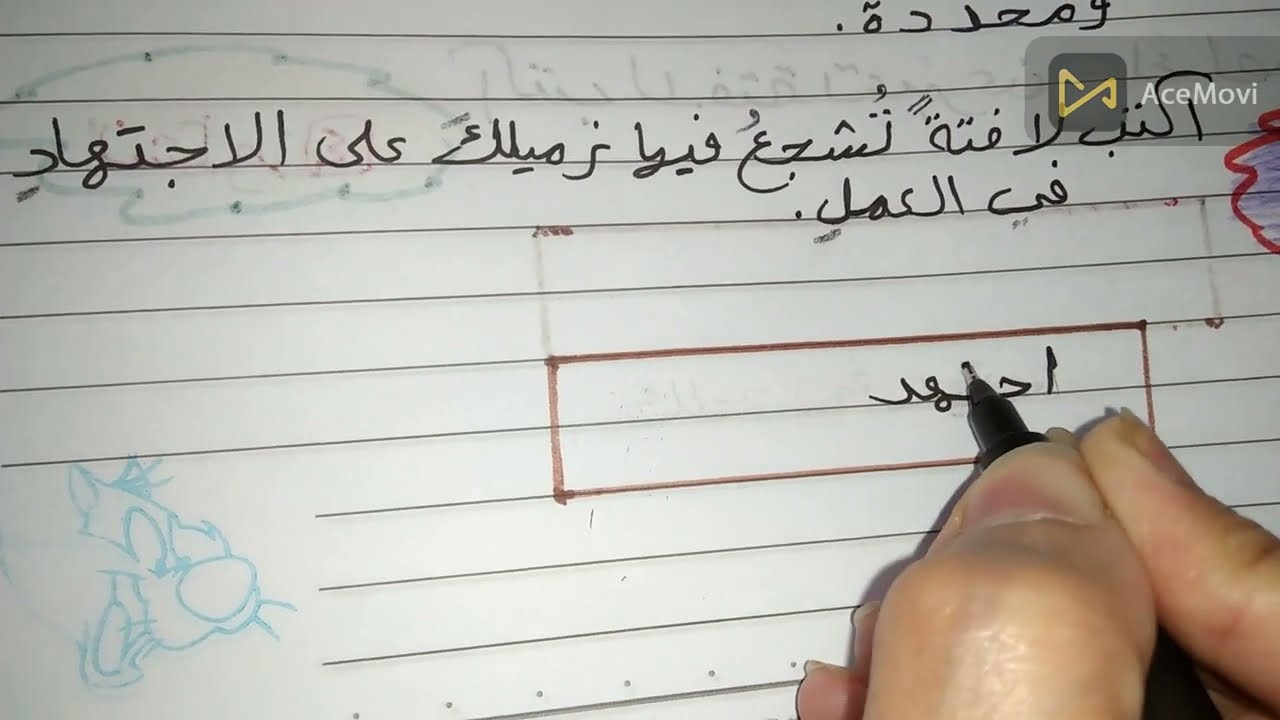 ومحددة.
AceMovi
اكتب لافتةً تُشجعُ فيها زميلكَ على الاجتهادِ
في العملِ.
اجتهد